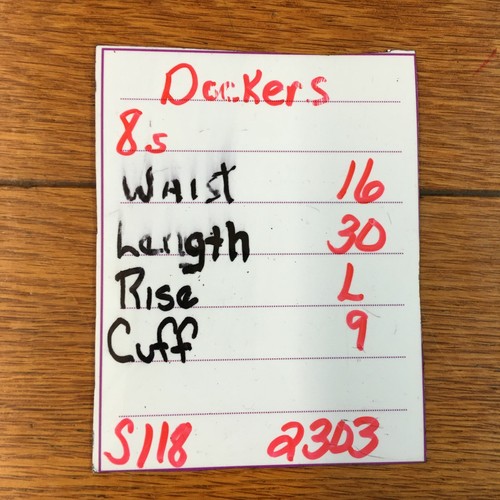 Dockers
8s
WAIST 16
Length 30
Rise L
Cuff 9
S118 2303